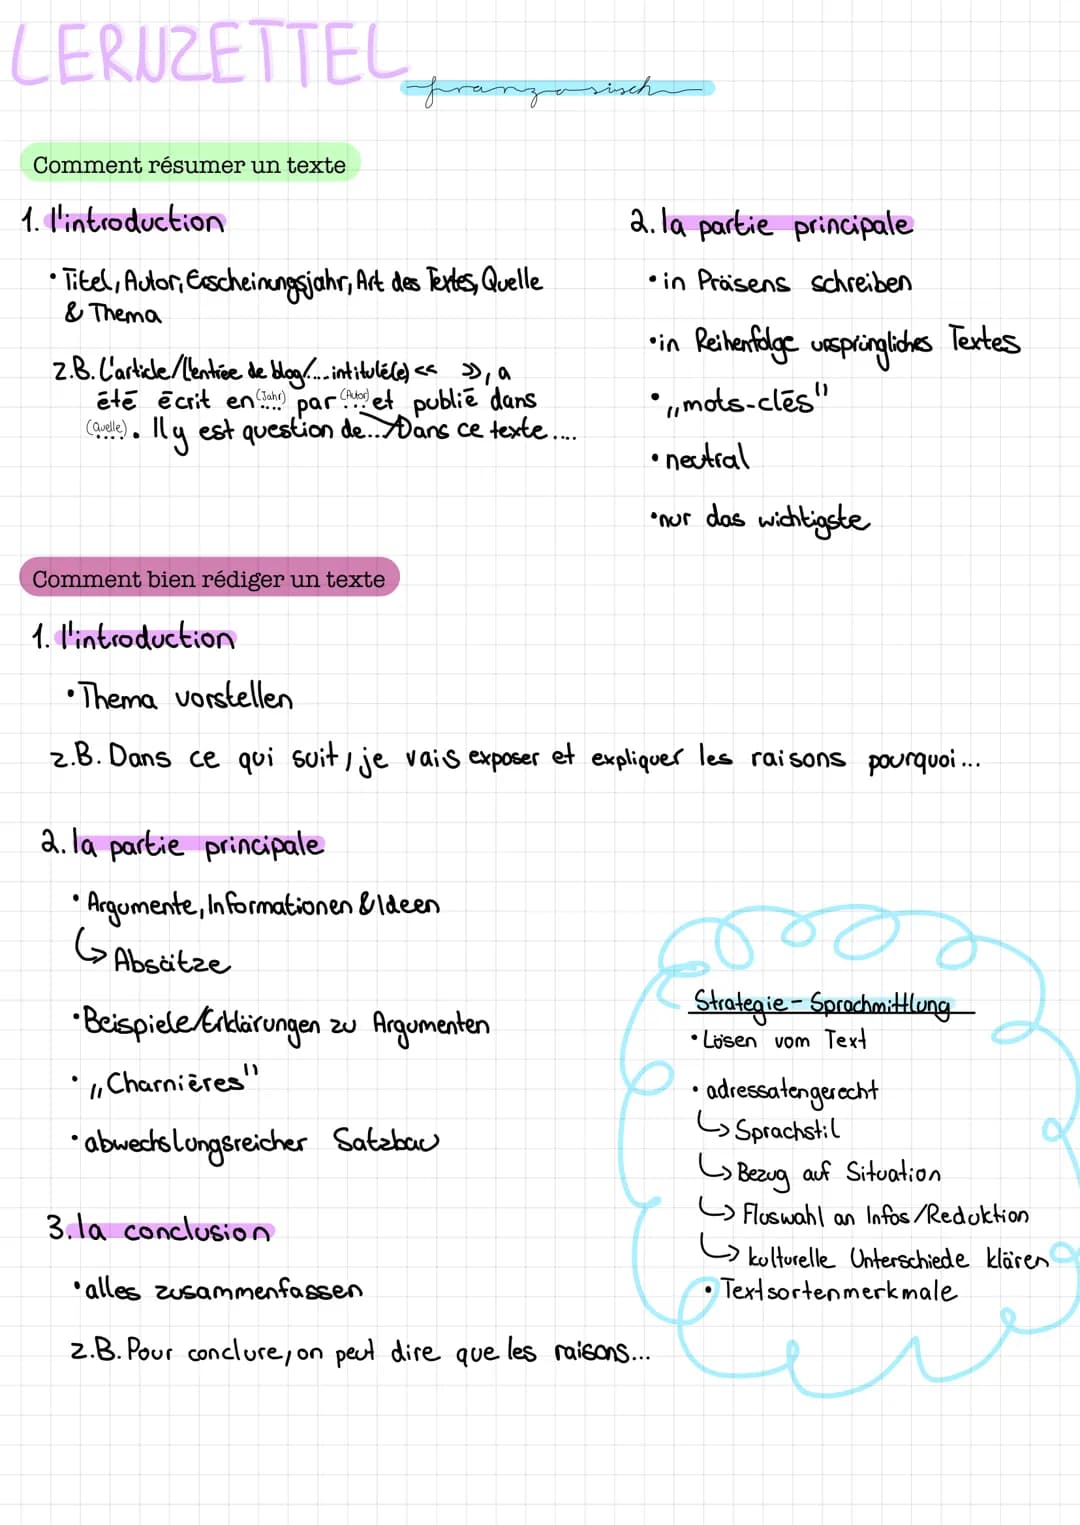 LERNZETTEL
französisch
Comment résumer un texte
1. l'introduction
• Titel, Autor, Erscheinungsjahr, Art des Textes, Quelle
& Thema
z.B. L'article/l'entrée de blog/... intitulé(e) << >>, a
été écrit en (Jahr) ... par (Autor) ... et publié dans
(Quelle) .... Il y est question de.../Dans ce texte....
2. la partie principale
• in Präsens schreiben
• in Reihenfolge ursprüngliches Textes
• „mots-clés"
• neutral
• nur das wichtigste
Comment bien rédiger un texte
1. l'introduction
• Thema vorstellen
z.B. Dans ce qui suit, je vais exposer et expliquer les raisons pourquoi...
2. la partie principale
• Argumente, Informationen & Ideen
↳ Absätze
• Beispiele/Erklärungen zu Argumenten
• „Charnières"
• abwechslungsreicher Satzbau
3. la conclusion
• alles zusammenfassen
z.B. Pour conclure, on peut dire que les raisons...
Strategie - Sprachmittlung
• Lösen vom Text
• adressatengerecht
↳ Sprachstil
↳ Bezug auf Situation
↳ Fluswahl an Infos/Reduktion
↳ kulturelle Unterschiede klären
• Textsortenmerkmale